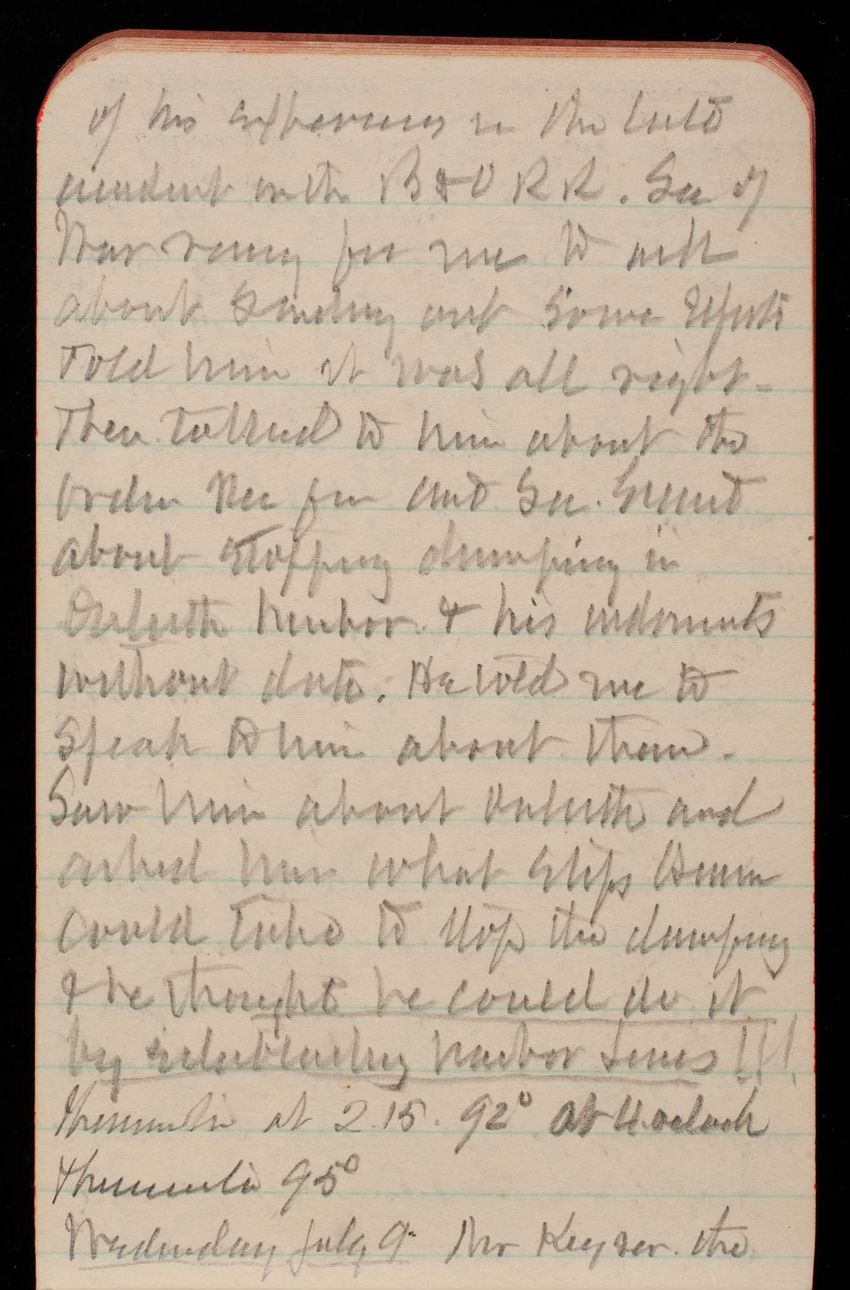 of his experiences in the last
accident on the B & O RR. Sec of
War rang for me to ask
about sending out some
Told him it was all right -
Then talked to him about the
order Rec from Act. Sec. Grant
about stopping dumping in
Duluth harbor & his indorsmts
without date. He told me to
speak to him about them.
Saw him about Duluth and
asked him what steps
could take to stop the dumping
& he thought he could do it
by establishing harbor lines!!!
at 2.15. 92° at 4 oclock
95°
Wednesday July 9. Mr Keyser. the